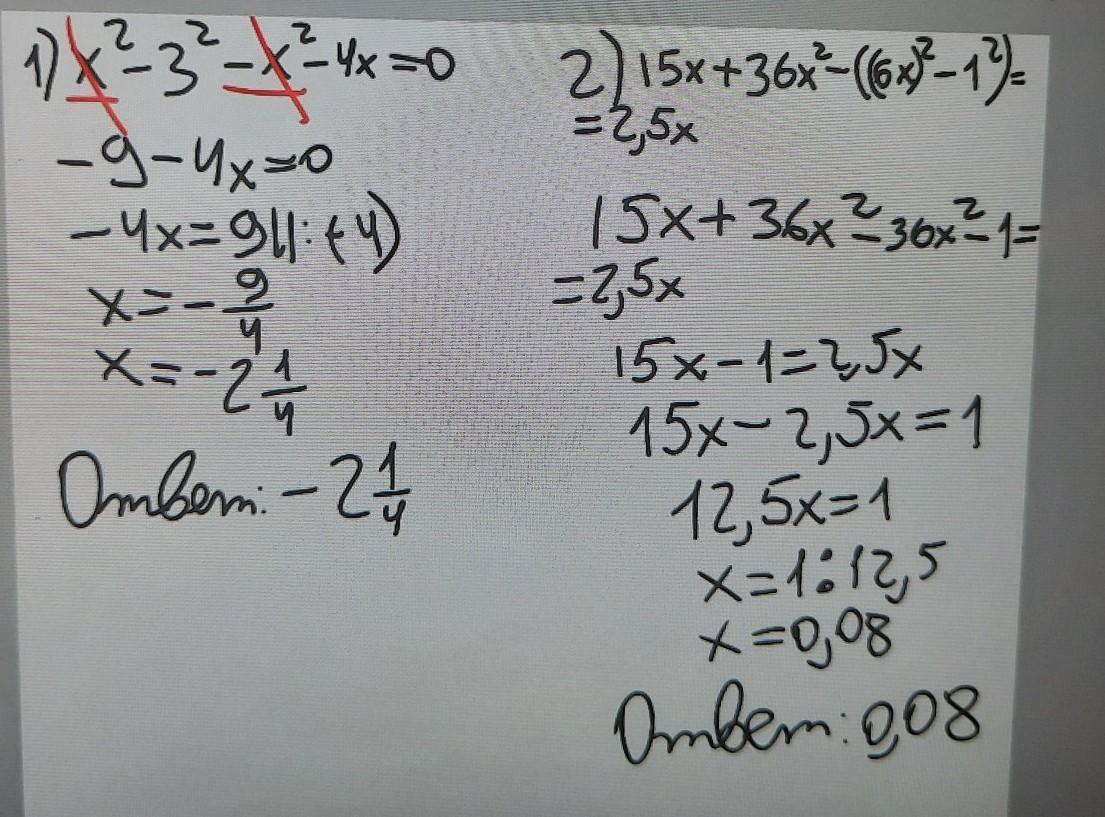 1) x² - 3² - x² - 4x = 0
-9 - 4x = 0
-4x = 9 | : (-4)
x = - 9/4
x = -2 1/4
Ответ: -2 1/4
2) 15x + 36x² - ((6x)² - 1²) =
= 2,5x
15x + 36x² - 36x² - 1 =
= 2,5x
15x - 1 = 2,5x
15x - 2,5x = 1
12,5x = 1
x = 1 : 12,5
x = 0,08
Ответ: 0,08